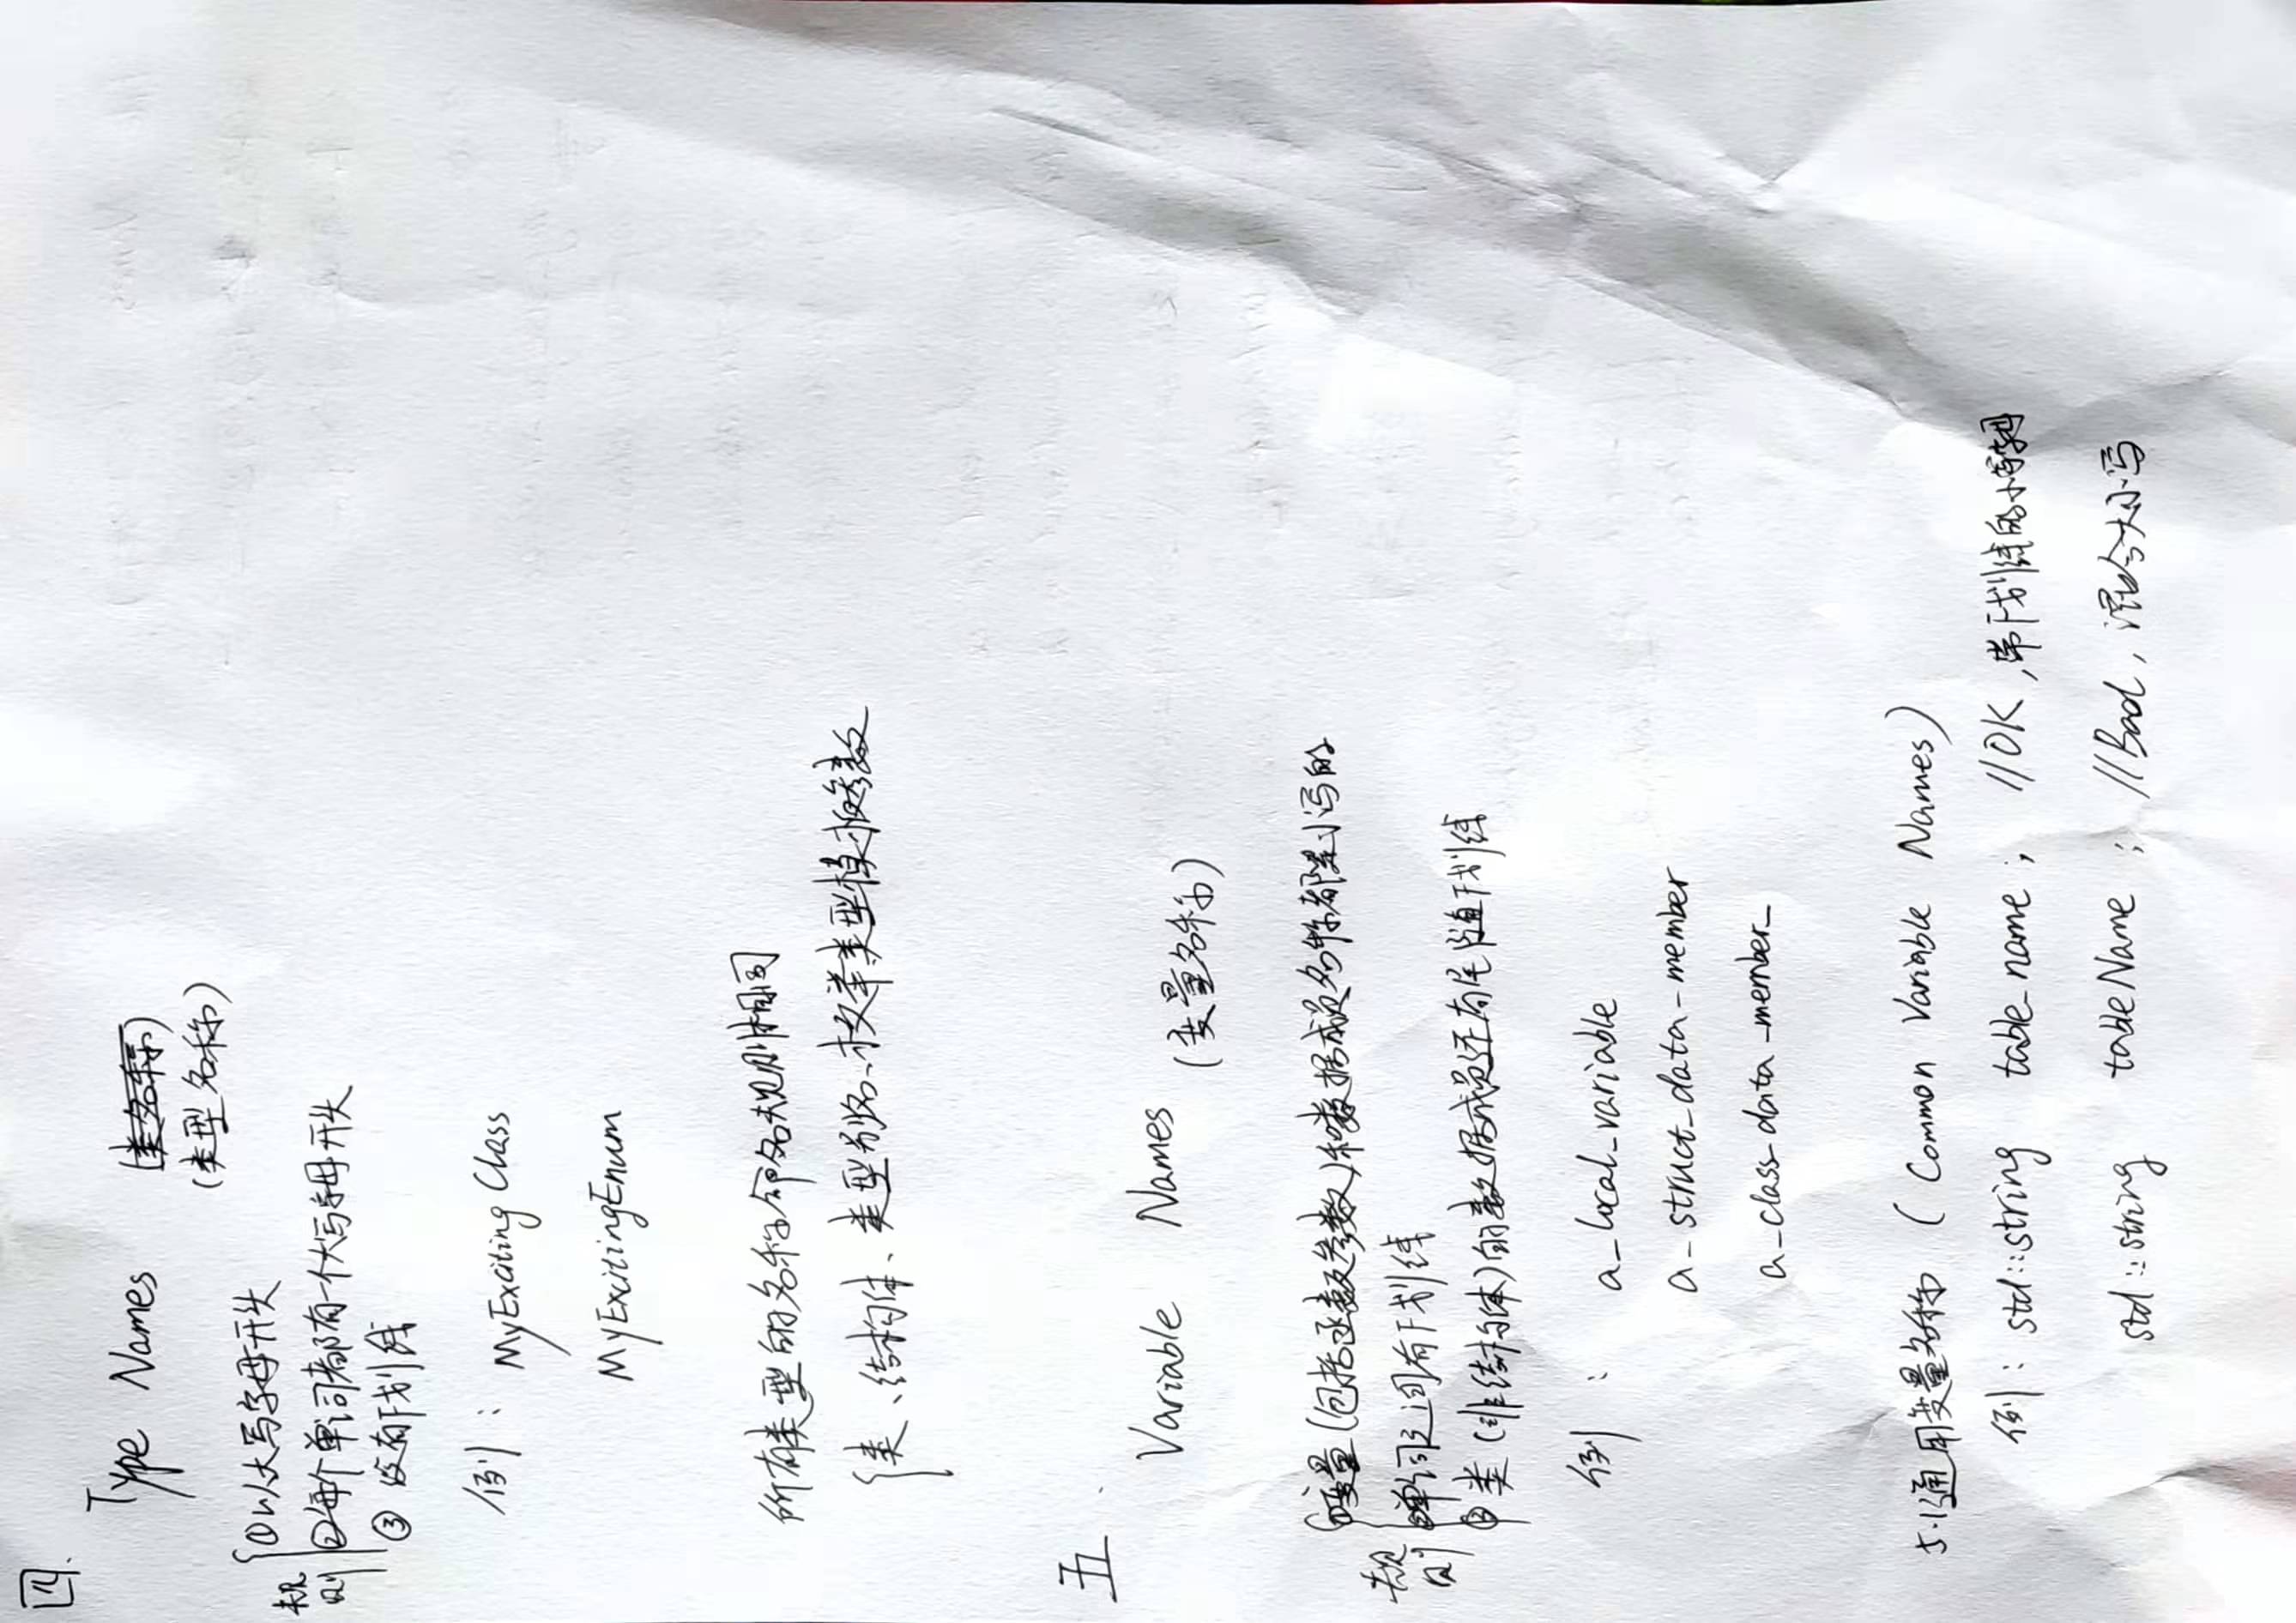 四.
Type Names (类名称)
(类型名称)
规则 ①以大写字母开头
②每个单词都有一个大写字母开头
③没有下划线
例: MyExciting Class
MyExcitingEnum
所有类型的名称命名规则相同
{类、结构体、类型别名、枚举类型模板参数
五. Variable Names (变量名称)
规则 ①变量(包括函数参数)和数据成员名称都是小写的
②单词之间有下划线
③类(非结构体)的数据成员还有尾随下划线
例: a_local_variable
a_struct_data_member
a_class_data_member_
5.1通用变量名称 (Common Variable Names)
例: std::string table_name; //OK,带下划线的小写字母
std::string tableName; //Bad,混合大小写